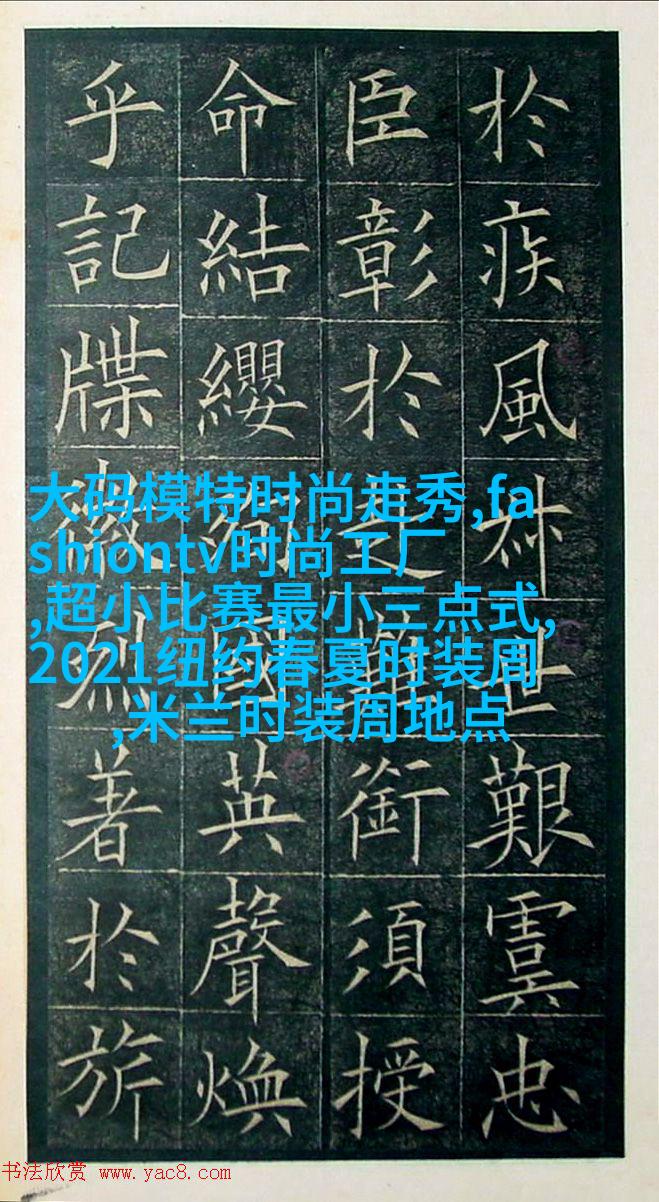 於疾風叔世艱虞忠
臣彰於赴難銜須授
命結纓殉國英聲煥
乎記牒徽烈著於旂
大码模特时尚走秀,fa
shiontv时尚工厂
,超小比赛最小三点式,
2021纽约春夏时装周
,米兰时装周地点
书法欣赏 www.yac8.com